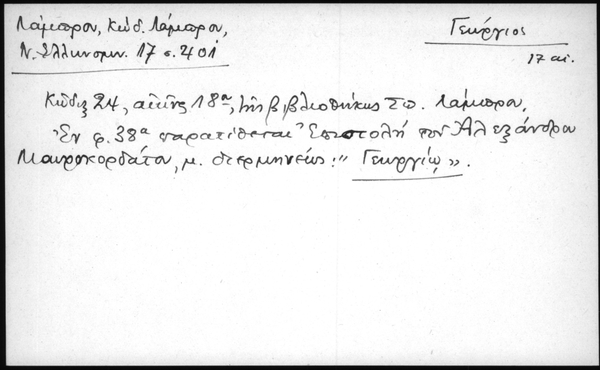 Λάμπρου, Κώδ. Λάμπρου,
Ν. Ἑλληνομν. 17 σ. 401
Γεώργιος
17 αἰ.
Κῶδιξ 24, αἰῶνος 18ου, τῆς βιβλιοθήκης Σπ. Λάμπρου.
Ἐν φ. 38α παρατίθεται Ἐπιστολὴ τοῦ Ἀλεξάνδρου
Μαυροκορδάτου, μ. διερμηνέως: "Γεωργίῳ".